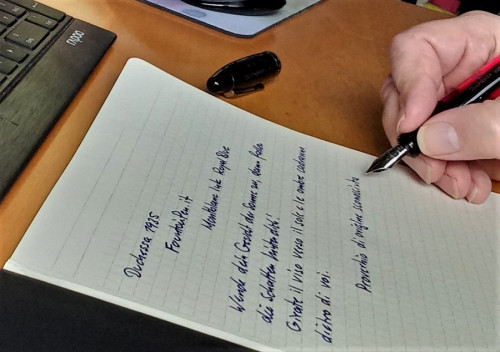 Duchessa 1935
FountainPen.it
Montblanc Ink Royal Blue
Wende dein Gesicht der Sonne zu, dann
die Schatten hinter dich!
Girate il viso verso il sole e le ombre cadranno
dietro di voi.
Proverbio di origine sconosciuta